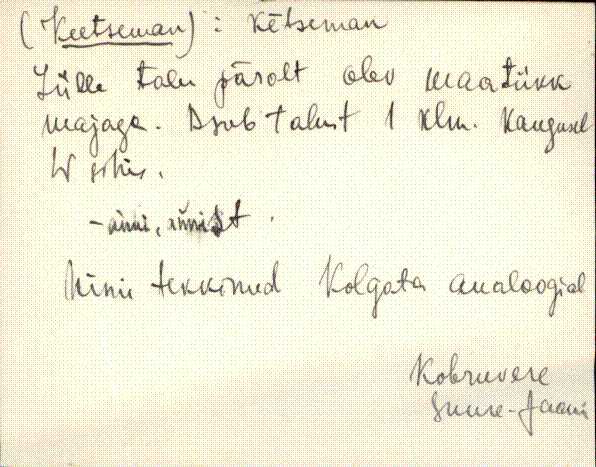 (Keetseman) : Kētseman
Lülle talu päralt olev maatükk
majaga. Asub talust 1 klm. kaugusel
W sihis.
Nimi tekkinud Kolgata analoogial
Kobruvere
Suure-Jaani